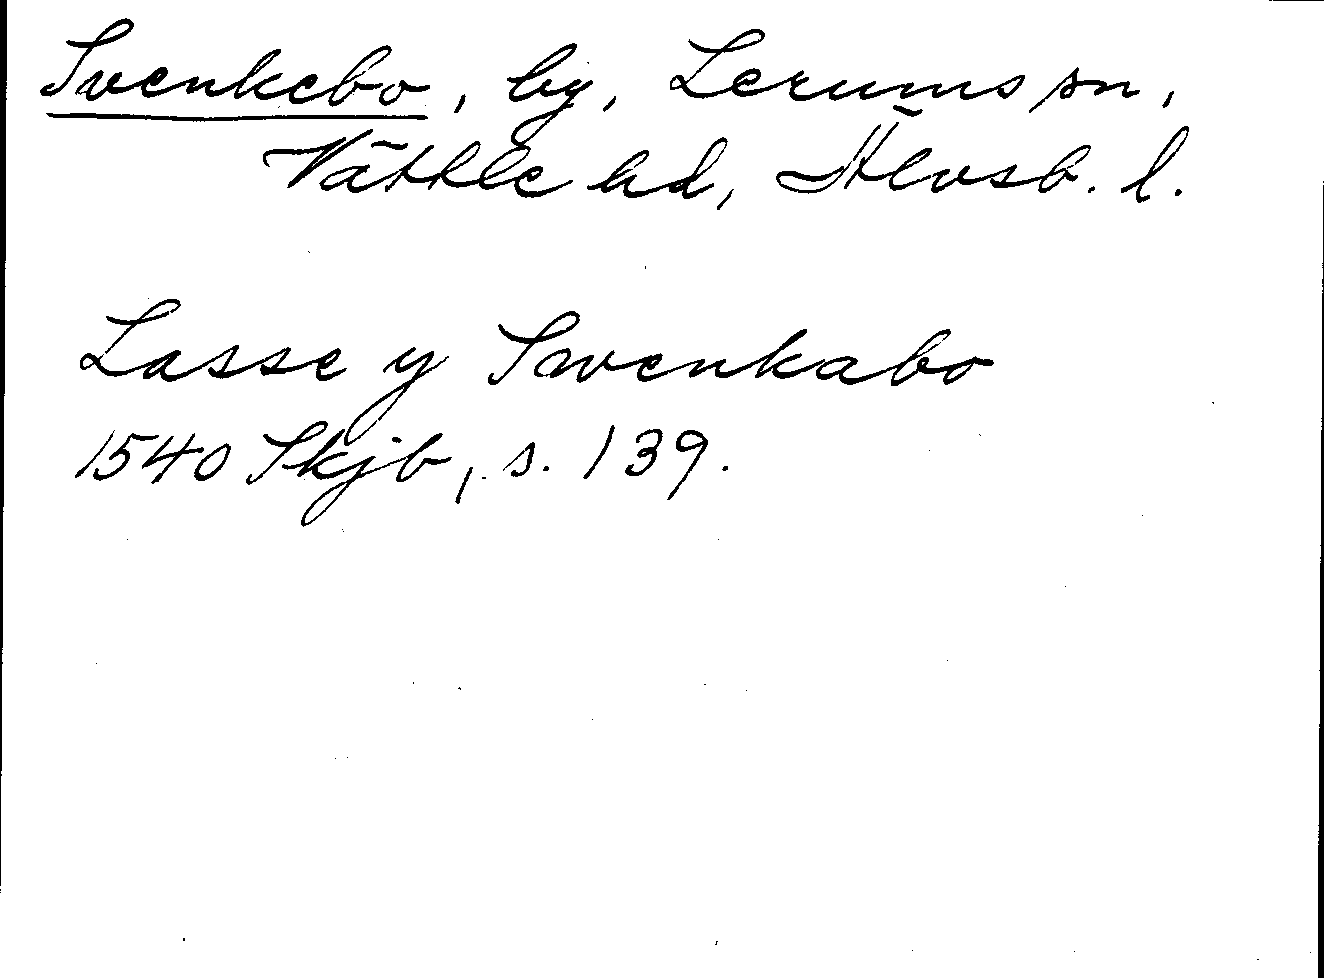 Svenkebo, by, Lerums sn,
Vättle hd, Älvsb. l.
Lasse y Swenkabo
1540 Skjb, s. 139.